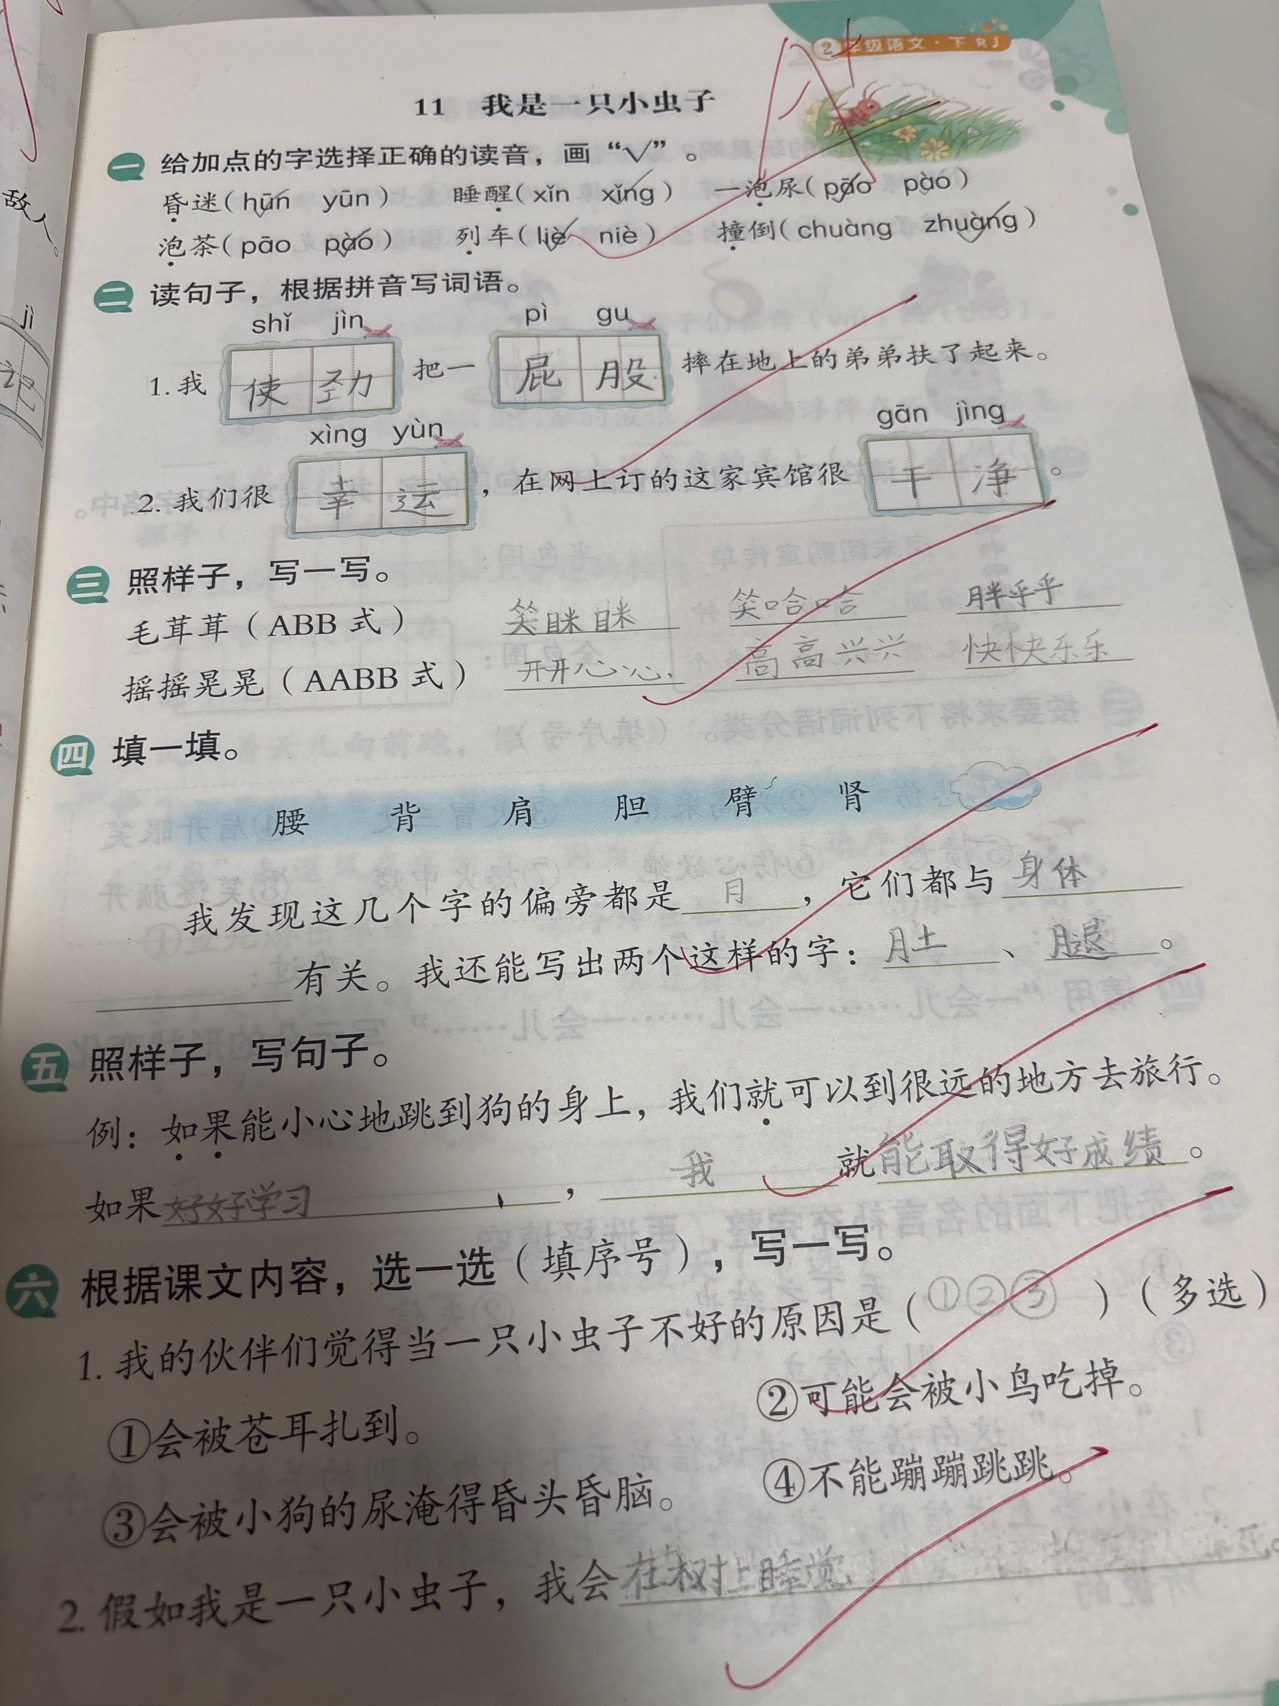 2年级语文·下 RJ
11 我是一只小虫子
一 给加点的字选择正确的读音，画“√”。
昏迷（hūn yūn） 睡醒（xǐn xǐng） 一泡尿（pāo pào）
泡茶（pāo pào） 列车（liè niè） 撞倒（chuàng zhuàng）
二 读句子，根据拼音写词语。
shǐ jìn pì gu
1.我 使劲 把一 屁股 摔在地上的弟弟扶了起来。
xìng yùn gān jìng
2.我们很 幸运 ，在网上订的这家宾馆很 干净 。
三 照样子，写一写。
毛茸茸（ABB 式） 笑眯眯 笑哈哈 胖乎乎
摇摇晃晃（AABB 式） 开开心心 高高兴兴 快快乐乐
四 填一填。
腰 背 肩 胆 臂 肾
我发现这几个字的偏旁都是 月 ，它们都与 身体
有关。我还能写出两个这样的字： 肚 、 腿 。
五 照样子，写句子。
例：如果能小心地跳到狗的身上，我们就可以到很远的地方去旅行。
如果 好好学习 ， 我 就 能取得好成绩 。
六 根据课文内容，选一选（填序号），写一写。
1. 我的伙伴们觉得当一只小虫子不好的原因是（ ①②③ ）（多选）
①会被苍耳扎到。 ②可能会被小鸟吃掉。
③会被小狗的尿淹得昏头昏脑。 ④不能蹦蹦跳跳。
2. 假如我是一只小虫子，我会 在树上睡觉
敌人。
jì
记